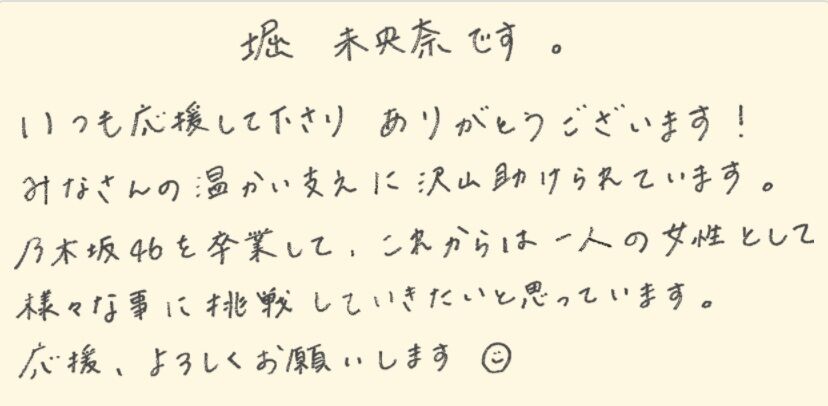 堀 未央奈です。
いつも応援して下さり ありがとうございます!
みなさんの温かい支えに沢山助けられています。
乃木坂46を卒業して、これからは一人の女性として
様々な事に挑戦していきたいと思っています。
応援、よろしくお願いします☺